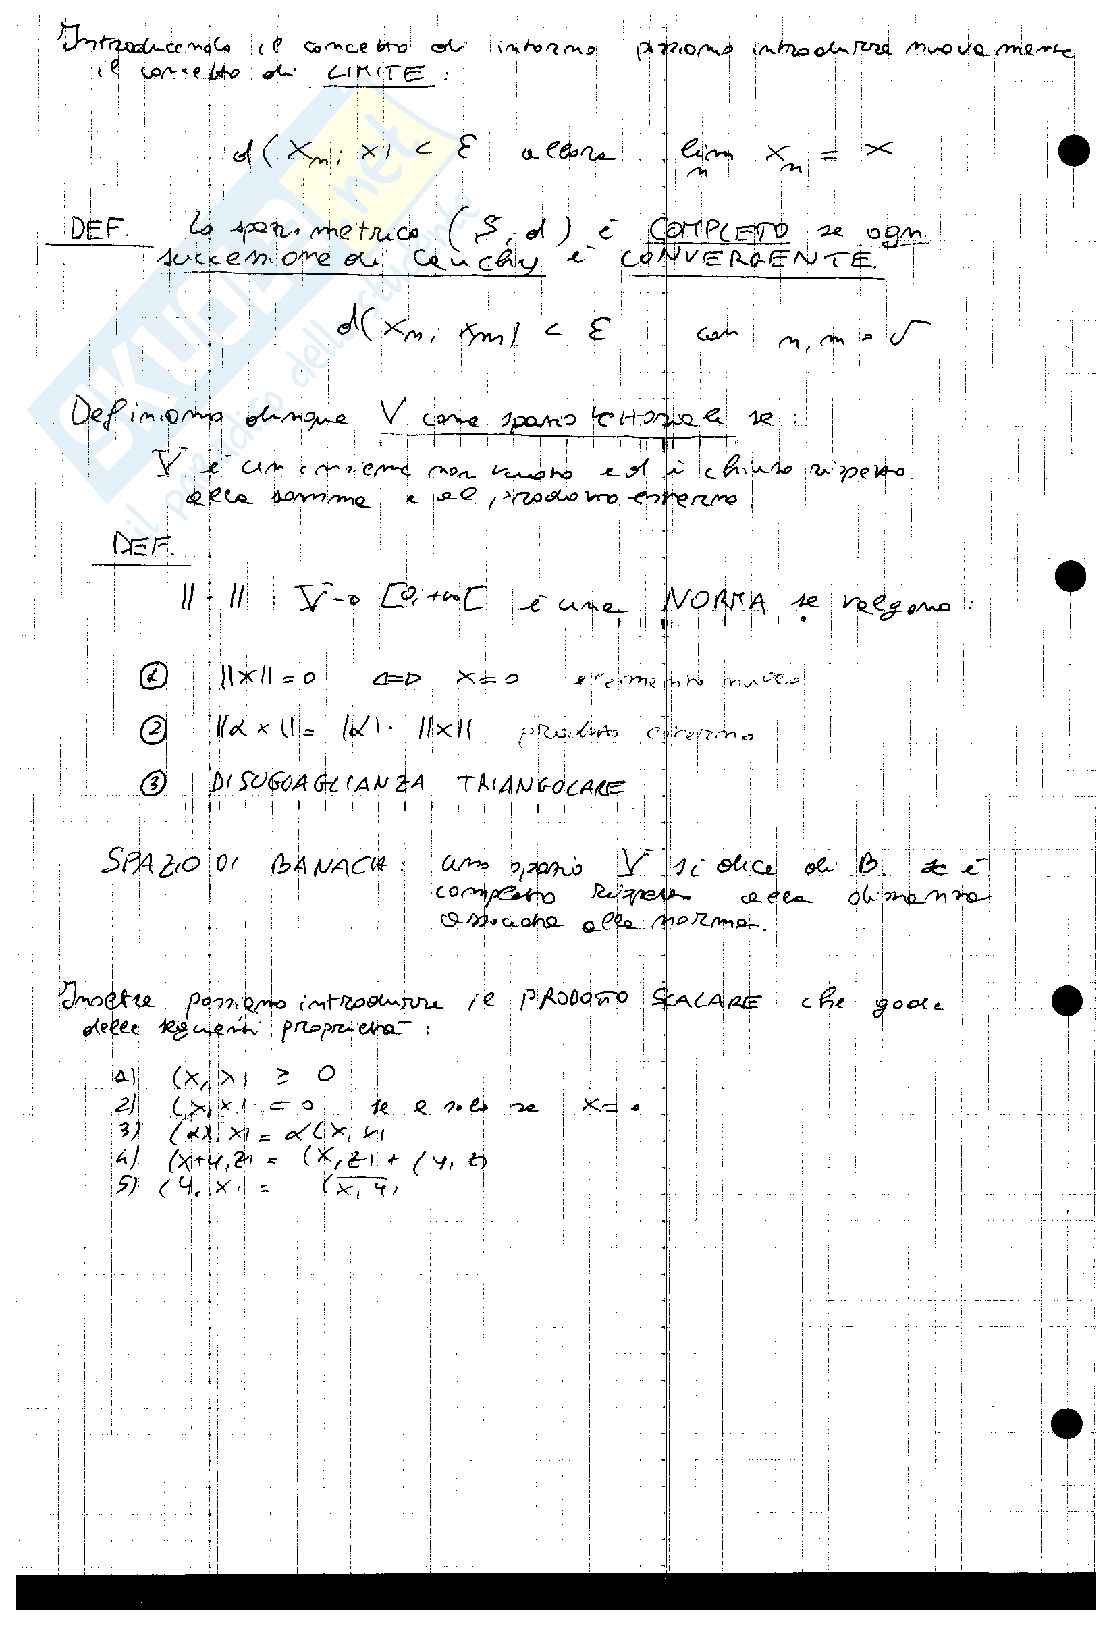 Introducendo il concetto di intorno possiamo introdurre nuovamente
il concetto di LIMITE :
d(xn; x) < ε allora lim xn = x
n
DEF. Lo spazio metrico (S, d) è COMPLETO se ogni
successione di Cauchy è CONVERGENTE.
d(xn; xm) < ε con n, m > ν
Definiamo dunque V come spazio vettoriale se :
V è un insieme non vuoto ed è chiuso rispetto
alla somma e al prodotto esterno
DEF.
|| · || : V → [0, +∞[ è una NORMA se valgono :
① ||x|| = 0 ⇔ x = 0 elemento nullo
② ||αx|| = |α| · ||x|| prodotto esterno
③ DISUGUAGLIANZA TRIANGOLARE
SPAZIO DI BANACH : uno spazio V si dice di B. se è
completo rispetto alla distanza
associata alla norma.
Inoltre possiamo introdurre il PRODOTTO SCALARE che gode
delle seguenti proprietà :
1) (x, x) ≥ 0
2) (x, x) = 0 se e solo se x = 0
3) (αx, y) = α(x, y)
4) (x+y, z) = (x, z) + (y, z)
5) (y, x) = (x, y)
skuola.net
il paradiso dello studente